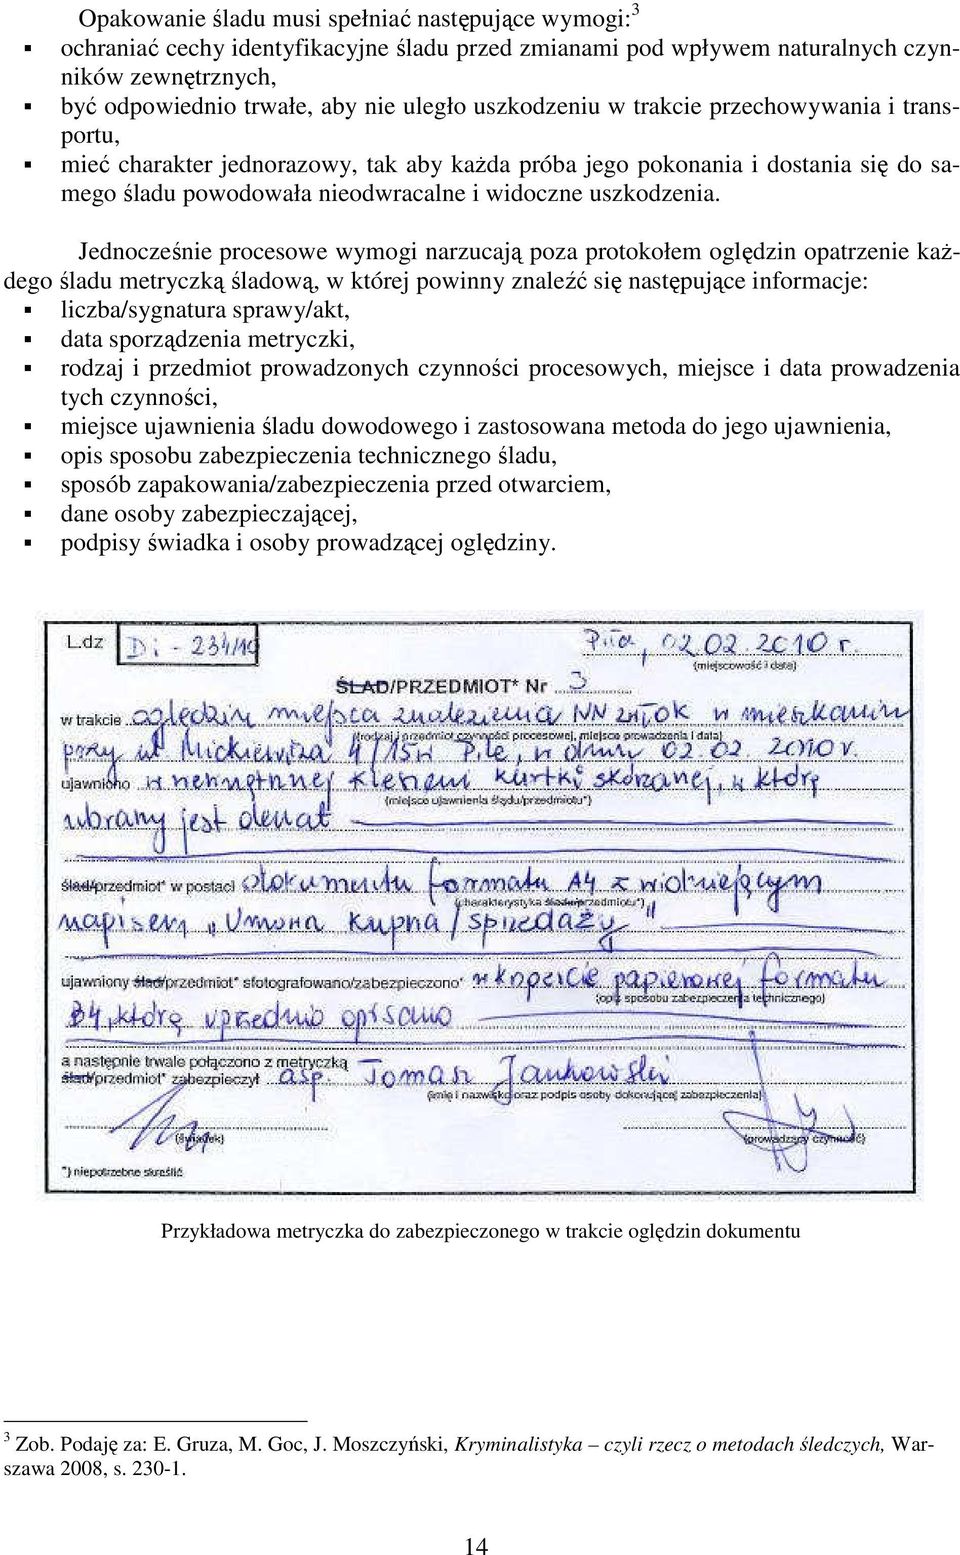 Opakowanie śladu musi spełniać następujące wymogi:3
▪ ochraniać cechy identyfikacyjne śladu przed zmianami pod wpływem naturalnych czyn-
ników zewnętrznych,
▪ być odpowiednio trwałe, aby nie uległo uszkodzeniu w trakcie przechowywania i trans-
portu,
▪ mieć charakter jednorazowy, tak aby każda próba jego pokonania i dostania się do sa-
mego śladu powodowała nieodwracalne i widoczne uszkodzenia.
Jednocześnie procesowe wymogi narzucają poza protokołem oględzin opatrzenie każ-
dego śladu metryczką śladową, w której powinny znaleźć się następujące informacje:
▪ liczba/sygnatura sprawy/akt,
▪ data sporządzenia metryczki,
▪ rodzaj i przedmiot prowadzonych czynności procesowych, miejsce i data prowadzenia
tych czynności,
▪ miejsce ujawnienia śladu dowodowego i zastosowana metoda do jego ujawnienia,
▪ opis sposobu zabezpieczenia technicznego śladu,
▪ sposób zapakowania/zabezpieczenia przed otwarciem,
▪ dane osoby zabezpieczającej,
▪ podpisy świadka i osoby prowadzącej oględziny.
L.dz Di - 234/10 Piła, 02.02.2010 r.
(miejscowość i data)
ŚLAD/PRZEDMIOT* Nr 3
w trakcie oględzin miejsca znalezienia NN zwłok w mieszkaniu
(rodzaj i przedmiot czynności procesowej, miejsce prowadzenia i data)
przy ul. Mickiewicza 4/15 w Pile, w dniu 02.02.2010 r.
ujawniono w wewnętrznej kieszeni kurtki skórzanej, w którą
(miejsce ujawnienia śladu/przedmiotu*)
ubrany jest denat
ślad/przedmiot* w postaci dokumentu formatu A4 z widniejącym
(charakterystyka śladu/przedmiotu*)
napisem „Umowa kupna/sprzedaży"
ujawniony ślad/przedmiot* sfotografowano/zabezpieczono* w kopercie papierowej formatu
(opis sposobu zabezpieczenia technicznego)
B4, którą uprzednio opisano
a następnie trwale połączono z metryczką
ślad/przedmiot* zabezpieczył asp. Tomasz Jankowski
(imię i nazwisko oraz podpis osoby dokonującej zabezpieczenia)
(świadek) (prowadzący czynność)
*) niepotrzebne skreślić
Przykładowa metryczka do zabezpieczonego w trakcie oględzin dokumentu
3 Zob. Podaję za: E. Gruza, M. Goc, J. Moszczyński, Kryminalistyka – czyli rzecz o metodach śledczych, War-
szawa 2008, s. 230-1.
14